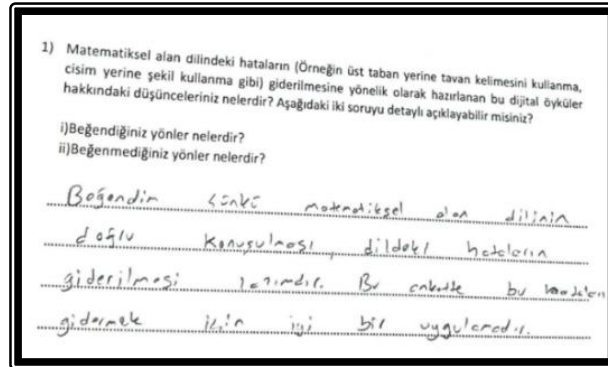 1) Matematiksel alan dilindeki hataların (Örneğin üst taban yerine tavan kelimesini kullanma,
cisim yerine şekil kullanma gibi) giderilmesine yönelik olarak hazırlanan bu dijital öyküler
hakkındaki düşünceleriniz nelerdir? Aşağıdaki iki soruyu detaylı açıklayabilir misiniz?
i)Beğendiğiniz yönler nelerdir?
ii)Beğenmediğiniz yönler nelerdir?
Beğendim çünkü matematiksel alan dilinin
doğru konuşulması, dildeki hataların
giderilmesi lazımdır. Bu ankette bu
gidermek için iyi bir uygulamadır.